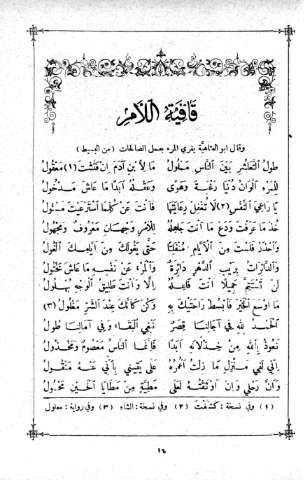 قافية اللام
وقال ابو العتاهية يغري المرء بعمل الصالحات (من البسيط)
طولُ التعاشرِ بين الناسِ مملولُ ما لابنِ آدمَ إن فتّشتَ (١) معقولُ
للمرءِ ألوانُ دنيا رغبةٌ وهوًى وعقلُهُ أبدًا ما عاش مدخولُ
يا راعيَ النفسِ (٢) لا تُغفل رعايتَها فأنت عن كلِّ ما استرعيتَ مسئولُ
خُذ ما عرفتَ ودَع ما أنت جاهلُهُ للأمرِ وجهانِ معروفٌ ومجهولُ
واحذر فلستَ من الأيامِ منفلتًا حتى يغولكَ من أيامكَ الغولُ
والدائراتُ بريبِ الدهرِ دائرةٌ والمرءُ عن نفسهِ ما عاش مختولُ
لن تستتمَّ جميلاً أنت فاعلُهُ إلا وأنت طليقُ الوجهِ بهلولُ
ما أوسعَ الخيرَ فابسط راحتيكَ بهِ وكن كأنك عند الشرِّ مغلولُ (٣)
الحمدُ للهِ في آجالنا قِصَرٌ نبغي البقاءَ وفي آمالنا طولُ
نعوذُ باللهِ من خذلانهِ أبدًا فإنما الناسُ معصومٌ ومخذولُ
إني لفي منزلٍ ما زلتُ أعمرُهُ على يقيني بأني عنهُ منقولُ
وأنّ رحلي وإن أوثقتُهُ لعلى مطيّةٍ من مطايا الحَينِ محمولُ
(١) وفي نسخة: كشفت (٢) وفي نسخة: الشاء (٣) وفي رواية: معلول
١٤